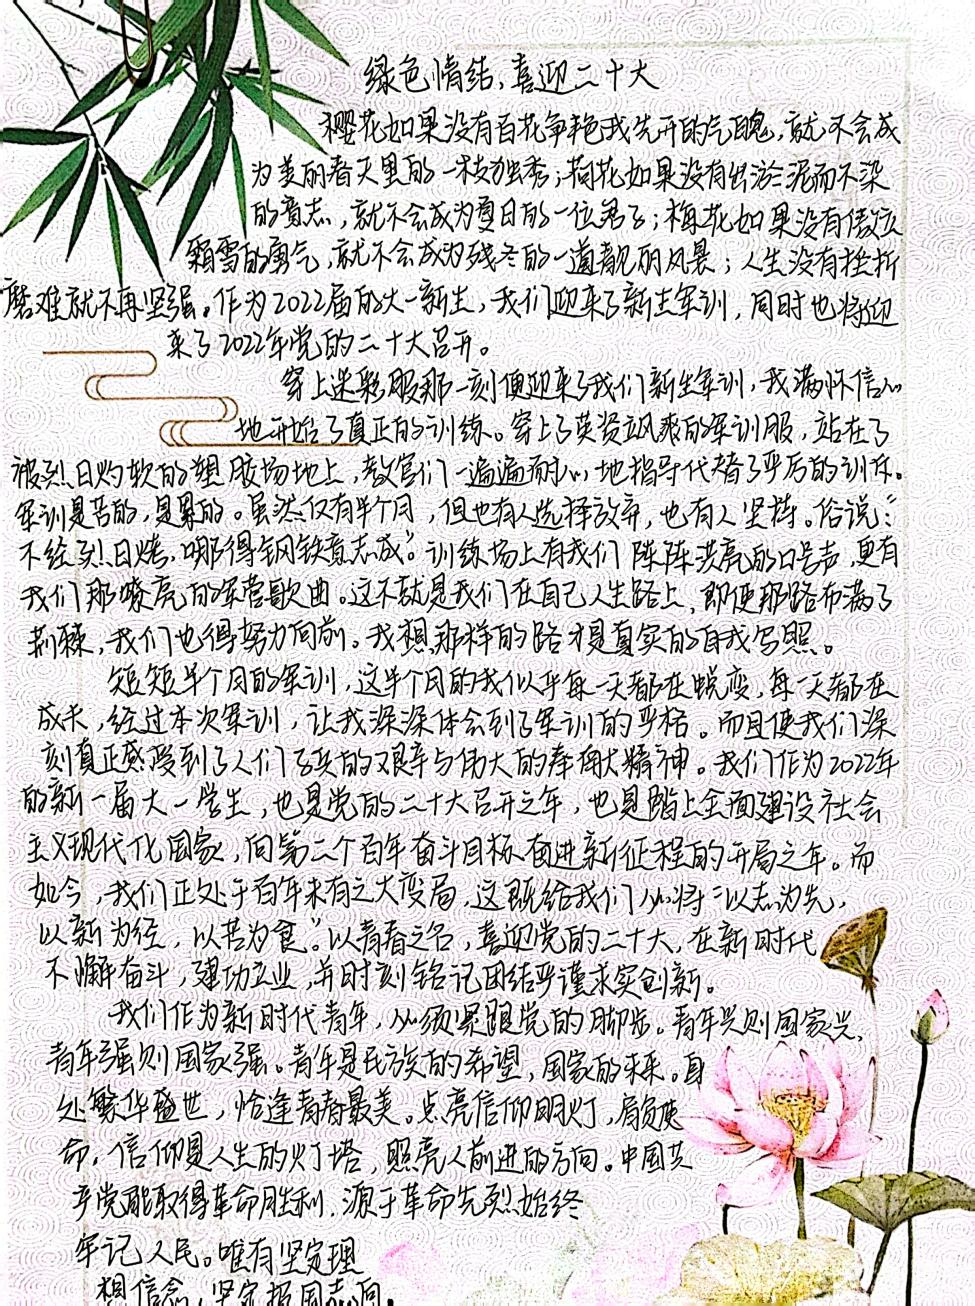 绿色情结,喜迎二十大
樱花如果没有百花争艳我先开的气魄,就不会成
为美丽春天里的一枝独秀;荷花如果没有出淤泥而不染
的意志,就不会成为夏日的一位君子;梅花如果没有傲立
霜雪的勇气,就不会成为残冬的一道靓丽风景;人生没有挫折
磨难就不再坚强。作为2022届的大一新生,我们迎来了新生军训,同时也将迎
来了2022年党的二十大召开。
穿上迷彩服那一刻便迎来了我们新生军训,我满怀信心
地开始了真正的训练。穿上了英资飒爽的军训服,站在了
被烈日灼软的塑胶场地上,教官们一遍遍耐心地指导代替了严厉的训斥。
军训是苦的,是累的。虽然仅有半个月,但也有人选择放弃,也有人坚持。俗说:“
不经烈日烤,哪得钢铁意志成”。训练场上有我们阵阵洪亮的口号声,更有
我们那嘹亮的军营歌曲。这不就是我们在自己人生路上,即便那路布满了
荆棘,我们也得努力向前。我想那样的路才是真实的自我写照。
短短半个月的军训,这半个月的我似乎每一天都在蜕变,每一天都在
成长,经过本次军训,让我深深体会到了军训的严格。而且使我们深
刻真正感受到了人们子兵的艰辛与伟大的奉献精神。我们作为2022年
的新一届大一学生,也是党的二十大召开之年,也是踏上全面建设社会
主义现代化国家,向第二个百年奋斗目标奋进新征程的开局之年。而
如今,我们正处于百年未有之大变局,这既给我们必将“以志为先,
以新为经,以苦为食。”以青春之名,喜迎党的二十大,在新时代
不懈奋斗,建功立业,并时刻铭记团结严谨求实创新。
我们作为新时代青年,必须紧跟党的脚步。青年兴则国家兴,
青年强则国家强。青年是民族的希望,国家的未来。身
处繁华盛世,恰逢青春最美。点亮信仰明灯,肩负使
命,信仰是人生的灯塔,照亮人前进的方向。中国共
产党能取得革命胜利,源于革命先烈始终
牢记人民。唯有坚定理
想信念,坚定报国志向。